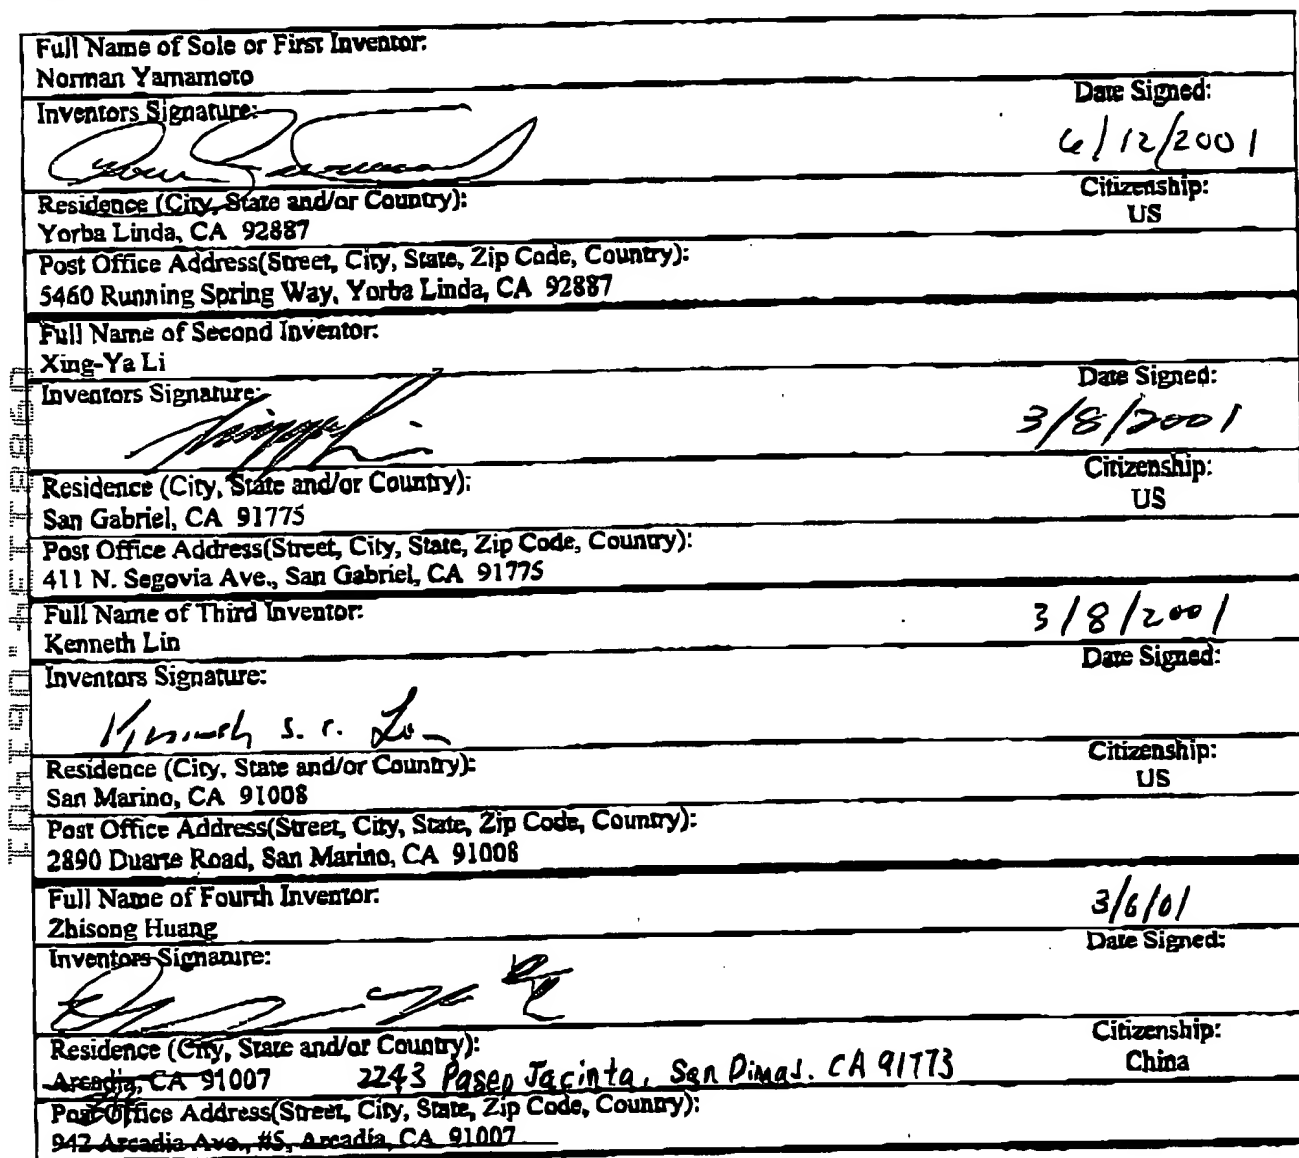 Full Name of Sole or First Inventor:
Norman Yamamoto
Inventors Signature:
Date Signed:
6/12/2001
Residence (City, State and/or Country):
Citizenship:
Yorba Linda, CA 92887
US
Post Office Address(Street, City, State, Zip Code, Country):
5460 Running Spring Way, Yorba Linda, CA 92887
Full Name of Second Inventor:
Xing-Ya Li
Inventors Signature:
Date Signed:
3/8/2001
Residence (City, State and/or Country):
Citizenship:
San Gabriel, CA 91775
US
Post Office Address(Street, City, State, Zip Code, Country):
411 N. Segovia Ave., San Gabriel, CA 91775
Full Name of Third Inventor:
3/8/2001
Kenneth Lin
Date Signed:
Inventors Signature:
Kenneth S. C. Lin
Residence (City, State and/or Country):
Citizenship:
San Marino, CA 91008
US
Post Office Address(Street, City, State, Zip Code, Country):
2890 Duarte Road, San Marino, CA 91008
Full Name of Fourth Inventor:
3/6/01
Zhisong Huang
Date Signed:
Inventors Signature:
Residence (City, State and/or Country):
Citizenship:
Arcadia, CA 91007 2243 Paseo Jacinta, San Dimas. CA 91773
China
Post Office Address(Street, City, State, Zip Code, Country):
942 Arcadia Ave., #5, Arcadia, CA 91007